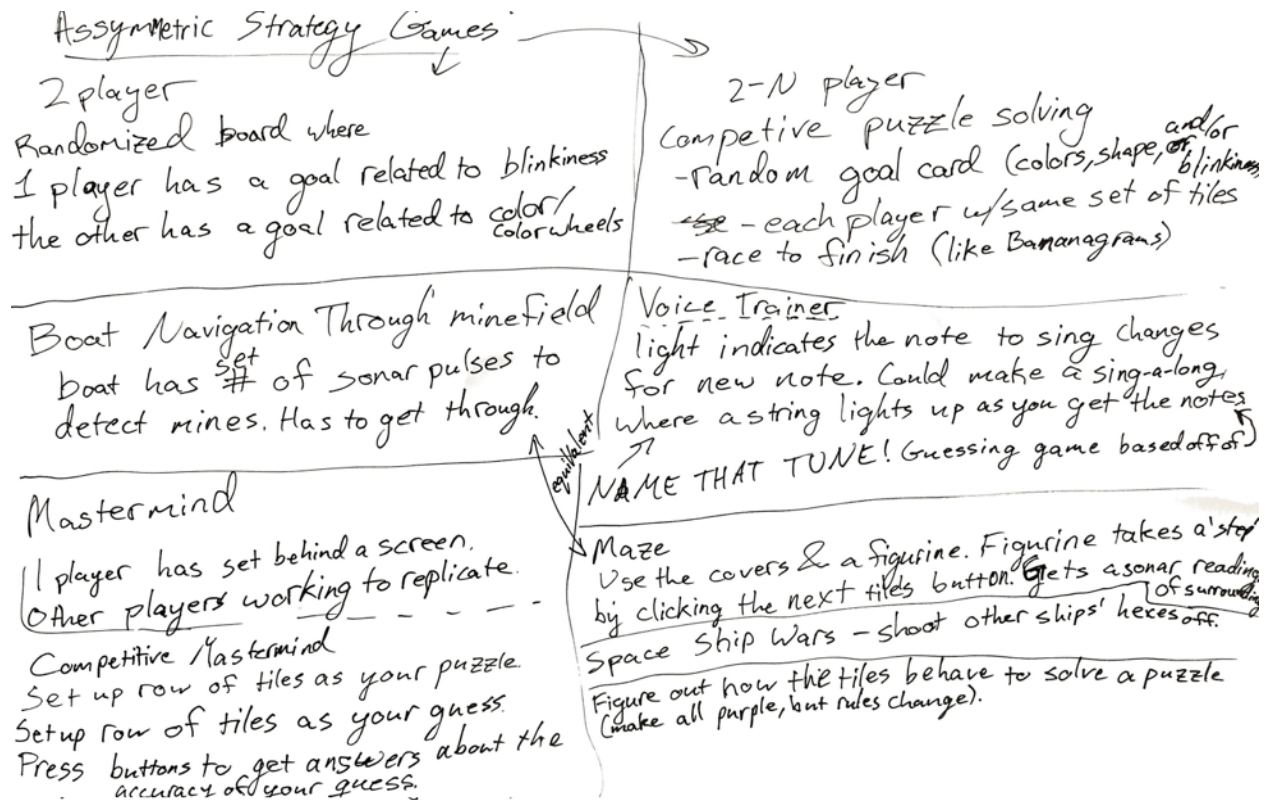 Assymetric Strategy Games
2 player
Randomized board where
1 player has a goal related to blinkiness
the other has a goal related to color/
colorwheels
2-N player
Competive puzzle solving
-random goal card (colors, shape, and/or
blinkiness
- each player w/same set of tiles
-race to finish (like Bananagrams)
Boat Navigation Through minefield
boat has set # of sonar pulses to
detect mines. Has to get through.
Voice Trainer
light indicates the note to sing changes
for new note. Could make a sing-a-long,
where a string lights up as you get the notes
NAME THAT TUNE! Guessing game based off of
equivalent
Mastermind
1 player has set behind a screen.
Other players working to replicate.
Competitive Mastermind
Set up row of tiles as your puzzle.
Setup row of tiles as your guess.
Press buttons to get answers about the
accuracy of your guess.
Maze
Use the covers & a figurine. Figurine takes a 'step'
by clicking the next tiles button. Gets a sonar reading
of surrounding
Space Ship Wars - shoot other ships' hexes off.
Figure out how the tiles behave to solve a puzzle
(make all purple, but rules change).